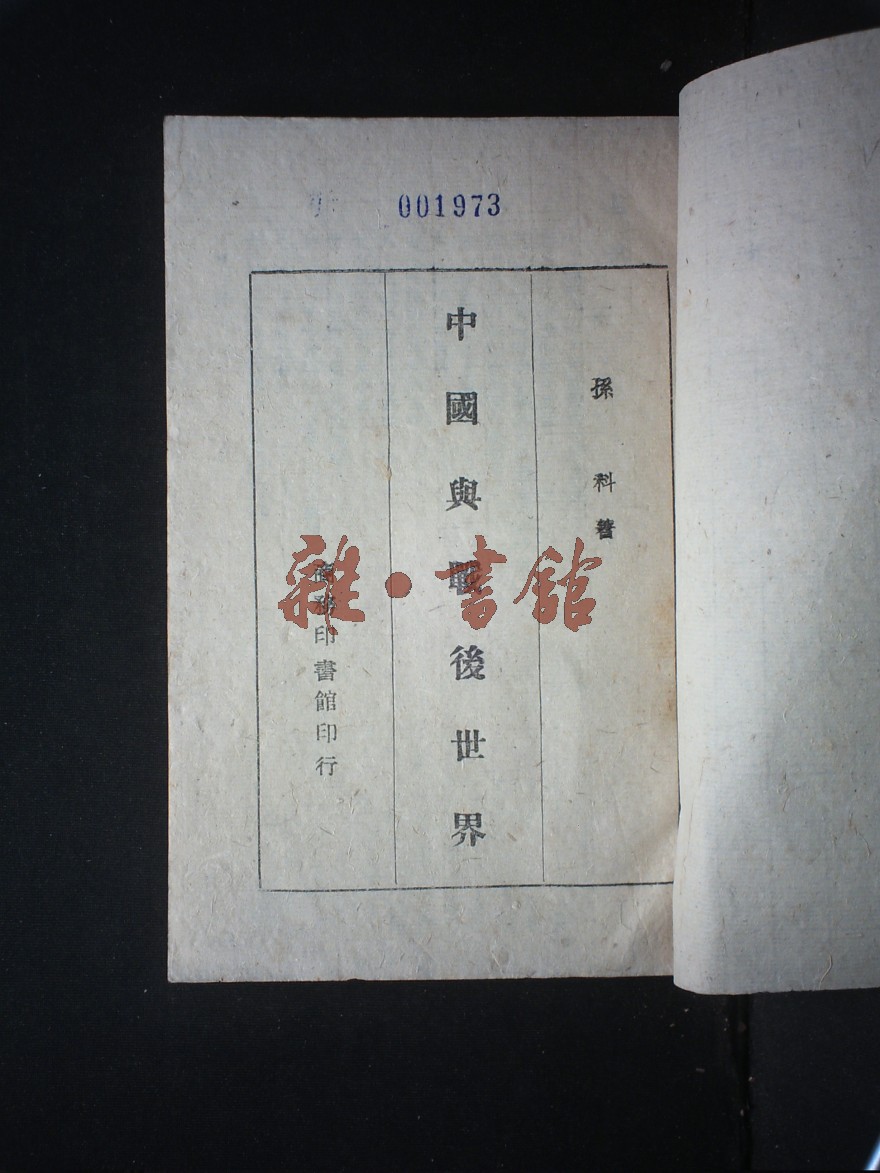 001973
孫科著
中國與戰後世界
商務印書館印行
雜·書館